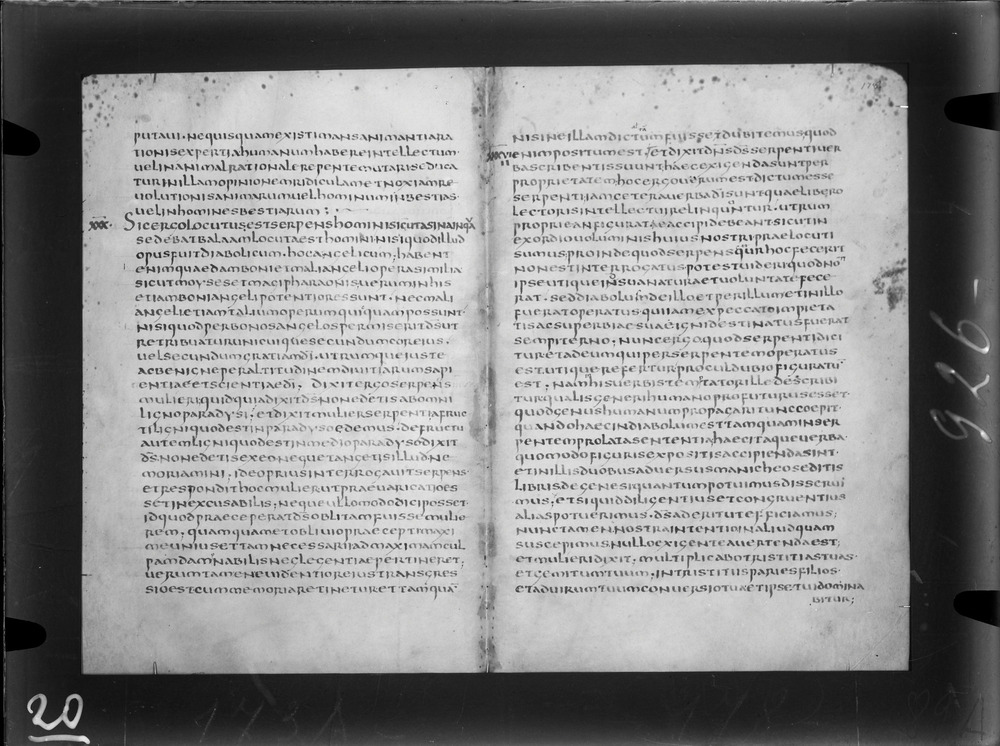 putavi. nequisquam existimans animantia ra
tionis expertia humanum habere intellectum.
vel in animal rationale repente mutari seduca
tur in illam opinionem ridiculam et noxiam re
volutionis animarum vel hominum in bestias.
vel in homines bestiarum;
XXX. Sic ergo locutus est serpens homini sicut asina in qua
sedebat balaam locuta est homini nisi quod illud
opus fuit diabolicum. hoc angelicum; habent
enim quaedam boni et mali angeli opera similia
sicut moyses et magi pharaonis verum in his
etiam boni angeli potentiores sunt. nec mali
angeli etiam talium operum quicquam possunt
nisi quod per bonos angelos permiserit ds ut
retribuatur unicuique secundum cor eius.
vel secundum gratiam di. utrumque iuste
ac benigne per altitudinem divitiarum sapi
entiae et scientiae di. Dixit ergo serpens
mulieri quid quia dixit ds non edetis ab omni
ligno paradysi; et dixit mulier serpenti a fruc
ti ligni quod est in paradyso edemus. de fructu
autem ligni quod est in medio paradyso dixit
ds non edetis ex eo neque tangetis illud ne
moriamini. ideo prius interrogavit serpens
et respondit hoc mulier ut praevaricatio es
set inexcusabilis. neque ullo modo dici posset.
id quod praeceperat ds oblitam fuisse mulie
rem; quamquam et oblivio praecepti maxi
me unius et tam necessarii ad maximam cul
pam damnabilis neglegentiae pertineret;
verum tamen evidentior eius transgres
sio est cum memoria retinetur et tamqua
nisi ne illam dictum fuisse dubitemus quod
enim positum est. et dixit dns ds serpenti ver
ba scribentis sunt haec exigenda sunt per
proprietatem hoc ergo verum est dictum esse
serpenti iam cetera verba di sunt quae libero
lectoris intellectui relinquntur. utrum
proprie an figurate accipi debeant sicut in
exordio voluminis huius nostri praelocuti
sumus proinde quod serpens qur hoc fecerit
non est interrogatus potest videri quod non
ipse utique in sua natura et voluntate fece
rat. sed diabolus inde illo et per illum et in illo
fuerat operatus. qui iam ex peccato impieta
tis ac superbiae suae igni destinatus fuerat
sempiterno. nunc ergo quod serpenti dici
tur et ad eum qui per serpentem operatus
est utique refertur procul dubio figuratu
est. nam his verbis temtator ille describi
tur qualis generi humano profuturus esset.
quod genus humanum propagari tunc coepit.
quando haec in diabolum est tamquam in ser
pentem prolata sententia haec itaque verba.
quomodo figuris expositis accipienda sint.
et in illis duobus adversus manicheos editis
libris de genesi quantum potuimus disserui
mus. et si quid diligentius et congruentius
alias potuerimus. ds aderit ut efficiamus;
nunc tamen nostra intentio in aliud quam
suscepimus nullo exigente avertenda est;
et mulieri dixit. multiplicabo tristitias tuas.
et gemitum tuum. in tristitiis paries filios.
et ad virum tuum conversio tua et ipse tui domina
bitur;
926-
20